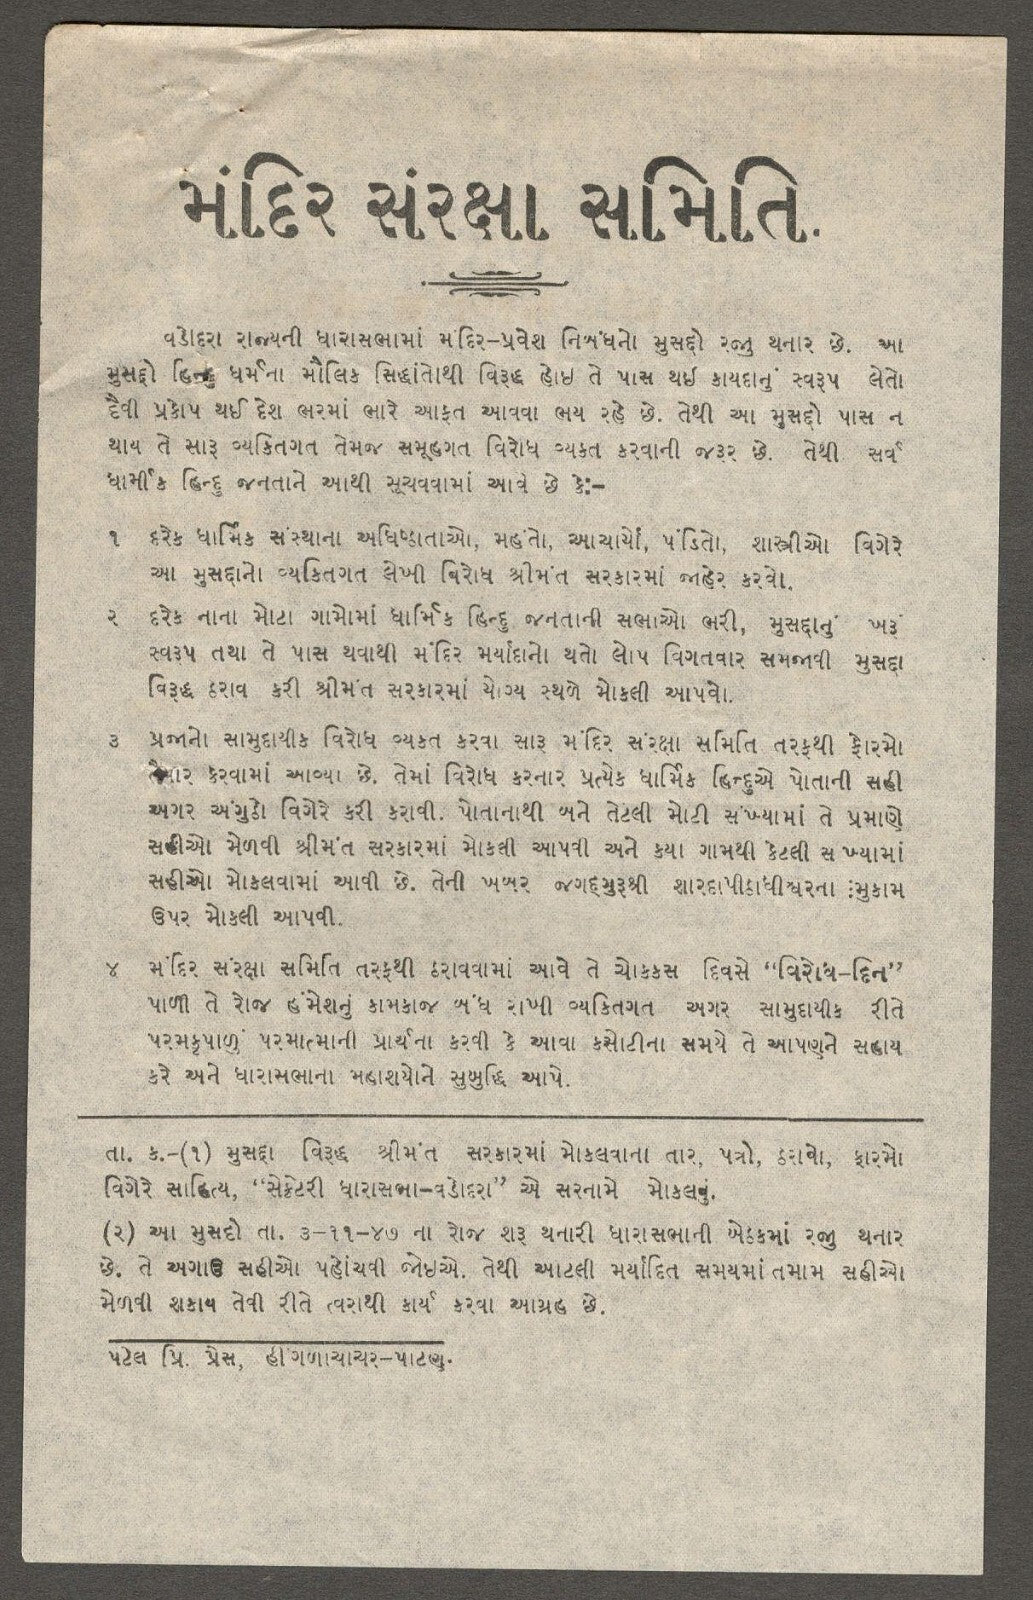 મંદિર સંરક્ષા સમિતિ.
વડોદરા રાજ્યની ધારાસભામાં મંદિર-પ્રવેશ નિબંધનો મુસદ્દો રજુ થનાર છે. આ
મુસદ્દો હિન્દુ ધર્મના મૌલિક સિદ્ધાંતોથી વિરૂદ્ધ હોઇ તે પાસ થઈ કાયદાનું સ્વરૂપ લેતો
દૈવી પ્રકોપ થઈ દેશ ભરમાં ભારે આફત આવવા ભય રહે છે. તેથી આ મુસદ્દો પાસ ન
થાય તે સારૂ વ્યકિતગત તેમજ સમૂહગત વિરોધ વ્યકત કરવાની જરૂર છે. તેથી સર્વ
ધાર્મીક હિન્દુ જનતાને આથી સૂચવવામાં આવે છે કે:-
૧ દરેક ધાર્મિક સંસ્થાના અધિષ્ઠાતાઓ, મહંતો, આચાર્યો, પંડિતો, શાસ્ત્રીઓ વિગેરે
આ મુસદ્દાનો વ્યકિતગત લેખી વિરોધ શ્રીમંત સરકારમાં જાહેર કરવો.
૨ દરેક નાના મોટા ગામોમાં ધાર્મિક હિન્દુ જનતાની સભાઓ ભરી, મુસદ્દાનું ખરૂં
સ્વરૂપ તથા તે પાસ થવાથી મંદિર મર્યાદાનો થતો લોપ વિગતવાર સમજાવી મુસદ્દા
વિરૂદ્ધ ઠરાવ કરી શ્રીમંત સરકારમાં યોગ્ય સ્થળે મોકલી આપવો.
૩ પ્રજાનો સામુદાયીક વિરોધ વ્યકત કરવા સારૂ મંદિર સંરક્ષા સમિતિ તરફથી ફોરમો
તૈયાર કરવામાં આવ્યા છે. તેમાં વિરોધ કરનાર પ્રત્યેક ધાર્મિક હિન્દુએ પોતાની સહી
અગર અંગુઠો વિગેરે કરી કરાવી. પોતાનાથી બને તેટલી મોટી સંખ્યામાં તે પ્રમાણે
સહીઓ મેળવી શ્રીમંત સરકારમાં મોકલી આપવી અને કયા ગામથી કેટલી સંખ્યામાં
સહીઓ મોકલવામાં આવી છે. તેની ખબર જગદ્ગુરૂશ્રી શારદાપીઠાધીશ્વરના મુકામ
ઉપર મોકલી આપવી.
૪ મંદિર સંરક્ષા સમિતિ તરફથી ઠરાવવામાં આવે તે ચોકકસ દિવસે "વિરોધ-દિન"
પાળી તે રોજ હંમેશનું કામકાજ બંધ રાખી વ્યકિતગત અગર સામુદાયીક રીતે
પરમકૃપાળું પરમાત્માની પ્રાર્થના કરવી કે આવા કસોટીના સમયે તે આપણને સહાય
કરે અને ધારાસભાના મહાશયોને સુબુદ્ધિ આપે.
તા. ક.-(૧) મુસદ્દા વિરૂદ્ધ શ્રીમંત સરકારમાં મોકલવાના તાર, પત્રો, ઠરાવો, ફારમો
વિગેરે સાહિત્ય, "સેક્રેટરી ધારાસભા-વડોદરા" એ સરનામે મોકલવું.
(૨) આ મુસદો તા. ૩-૧૧-૪૭ ના રોજ શરૂ થનારી ધારાસભાની બેઠકમાં રજુ થનાર
છે. તે અગાઉ સહીઓ પહોંચવી જોઇએ. તેથી આટલી મર્યાદિત સમયમાં તમામ સહીઓ
મેળવી શકાય તેવી રીતે ત્વરાથી કાર્ય કરવા આગ્રહ છે.
પટેલ પ્રિ. પ્રેસ, હીંગળાચાચર-પાટણ.